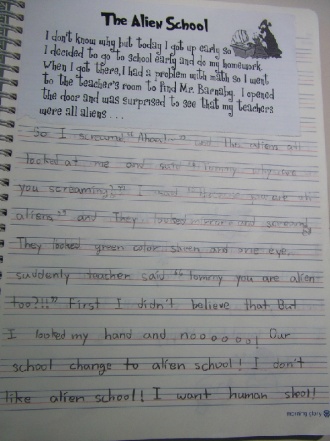 The Alien School
I don't know why but today I got up early so
I decided to go to school early and do my homework.
When I got there, I had a problem with math so I went
to the teacher's room to find Mr. Barnaby. I opened
the door and was surprised to see that my teachers
were all aliens . . . .
So I screamed "Ahaaa~" and the aliens all
looked at me and said "Tommy why are
you screaming?" I said "Because you are all
aliens" and They looked mirror and screamed
They looked green color skin and one eye.
suddenly teacher said "Tommy you are alien
too?!!" First I didn't believe that. But
I looked my hand and nooooooo! Our
school change to alien school! I don't
like alien school! I want human shool!